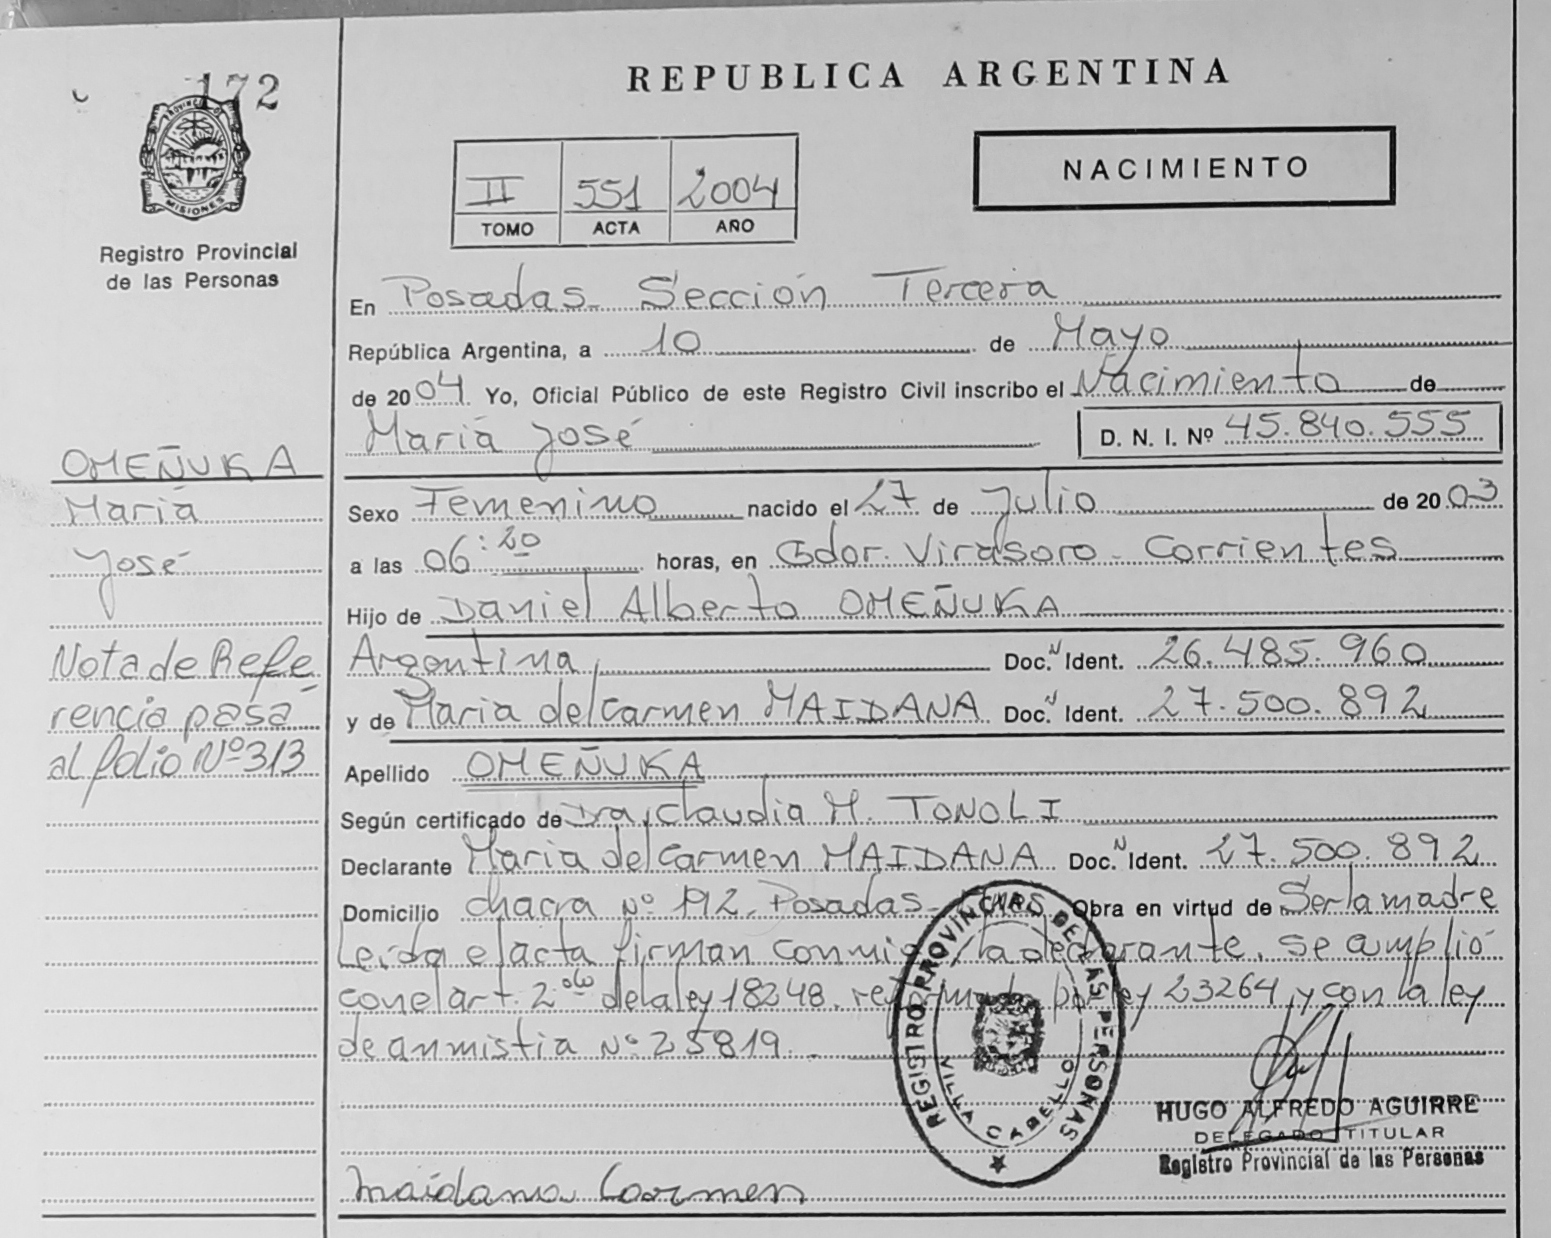 172
PROVINCIA
MISIONES
Registro Provincial
de las Personas
REPUBLICA ARGENTINA
II 551 2004
TOMO ACTA AÑO
NACIMIENTO
En Posadas - Sección Tercera
República Argentina, a 10 de Mayo
de 2004. Yo, Oficial Público de este Registro Civil inscribo el Nacimiento de
María José D. N. I. Nº 45.840.555
Sexo Femenino nacido el 27 de Julio de 2003
a las 06:20 horas, en Gdor. Virasoro - Corrientes
Hijo de Daniel Alberto OMEÑUKA
Argentina, Doc. N Ident. 26.485.960
y de Maria del Carmen MAIDANA Doc. N Ident. 27.500.892
Apellido OMEÑUKA
Según certificado de Dra, Claudia M. TONOLI
Declarante Maria del Carmen MAIDANA Doc. N Ident. 27.500.892
Domicilio chacra Nº 192, Posadas - Obra en virtud de Ser la madre
Leída el acta firman conmigo la declarante, se amplió
con el art. 2 do de la ley 18248, reformado por ley 23264, y con la ley
de anmistia Nº 25819.-
OMEÑUKA
María
José
Nota de Refe
rencia pasa
al folio Nº 313
REGISTRO PROVINCIAL DE LAS PERSONAS
VILLA CABELLO
HUGO ALFREDO AGUIRRE
DELEGADO TITULAR
Registro Provincial de las Personas
Maidana Carmen